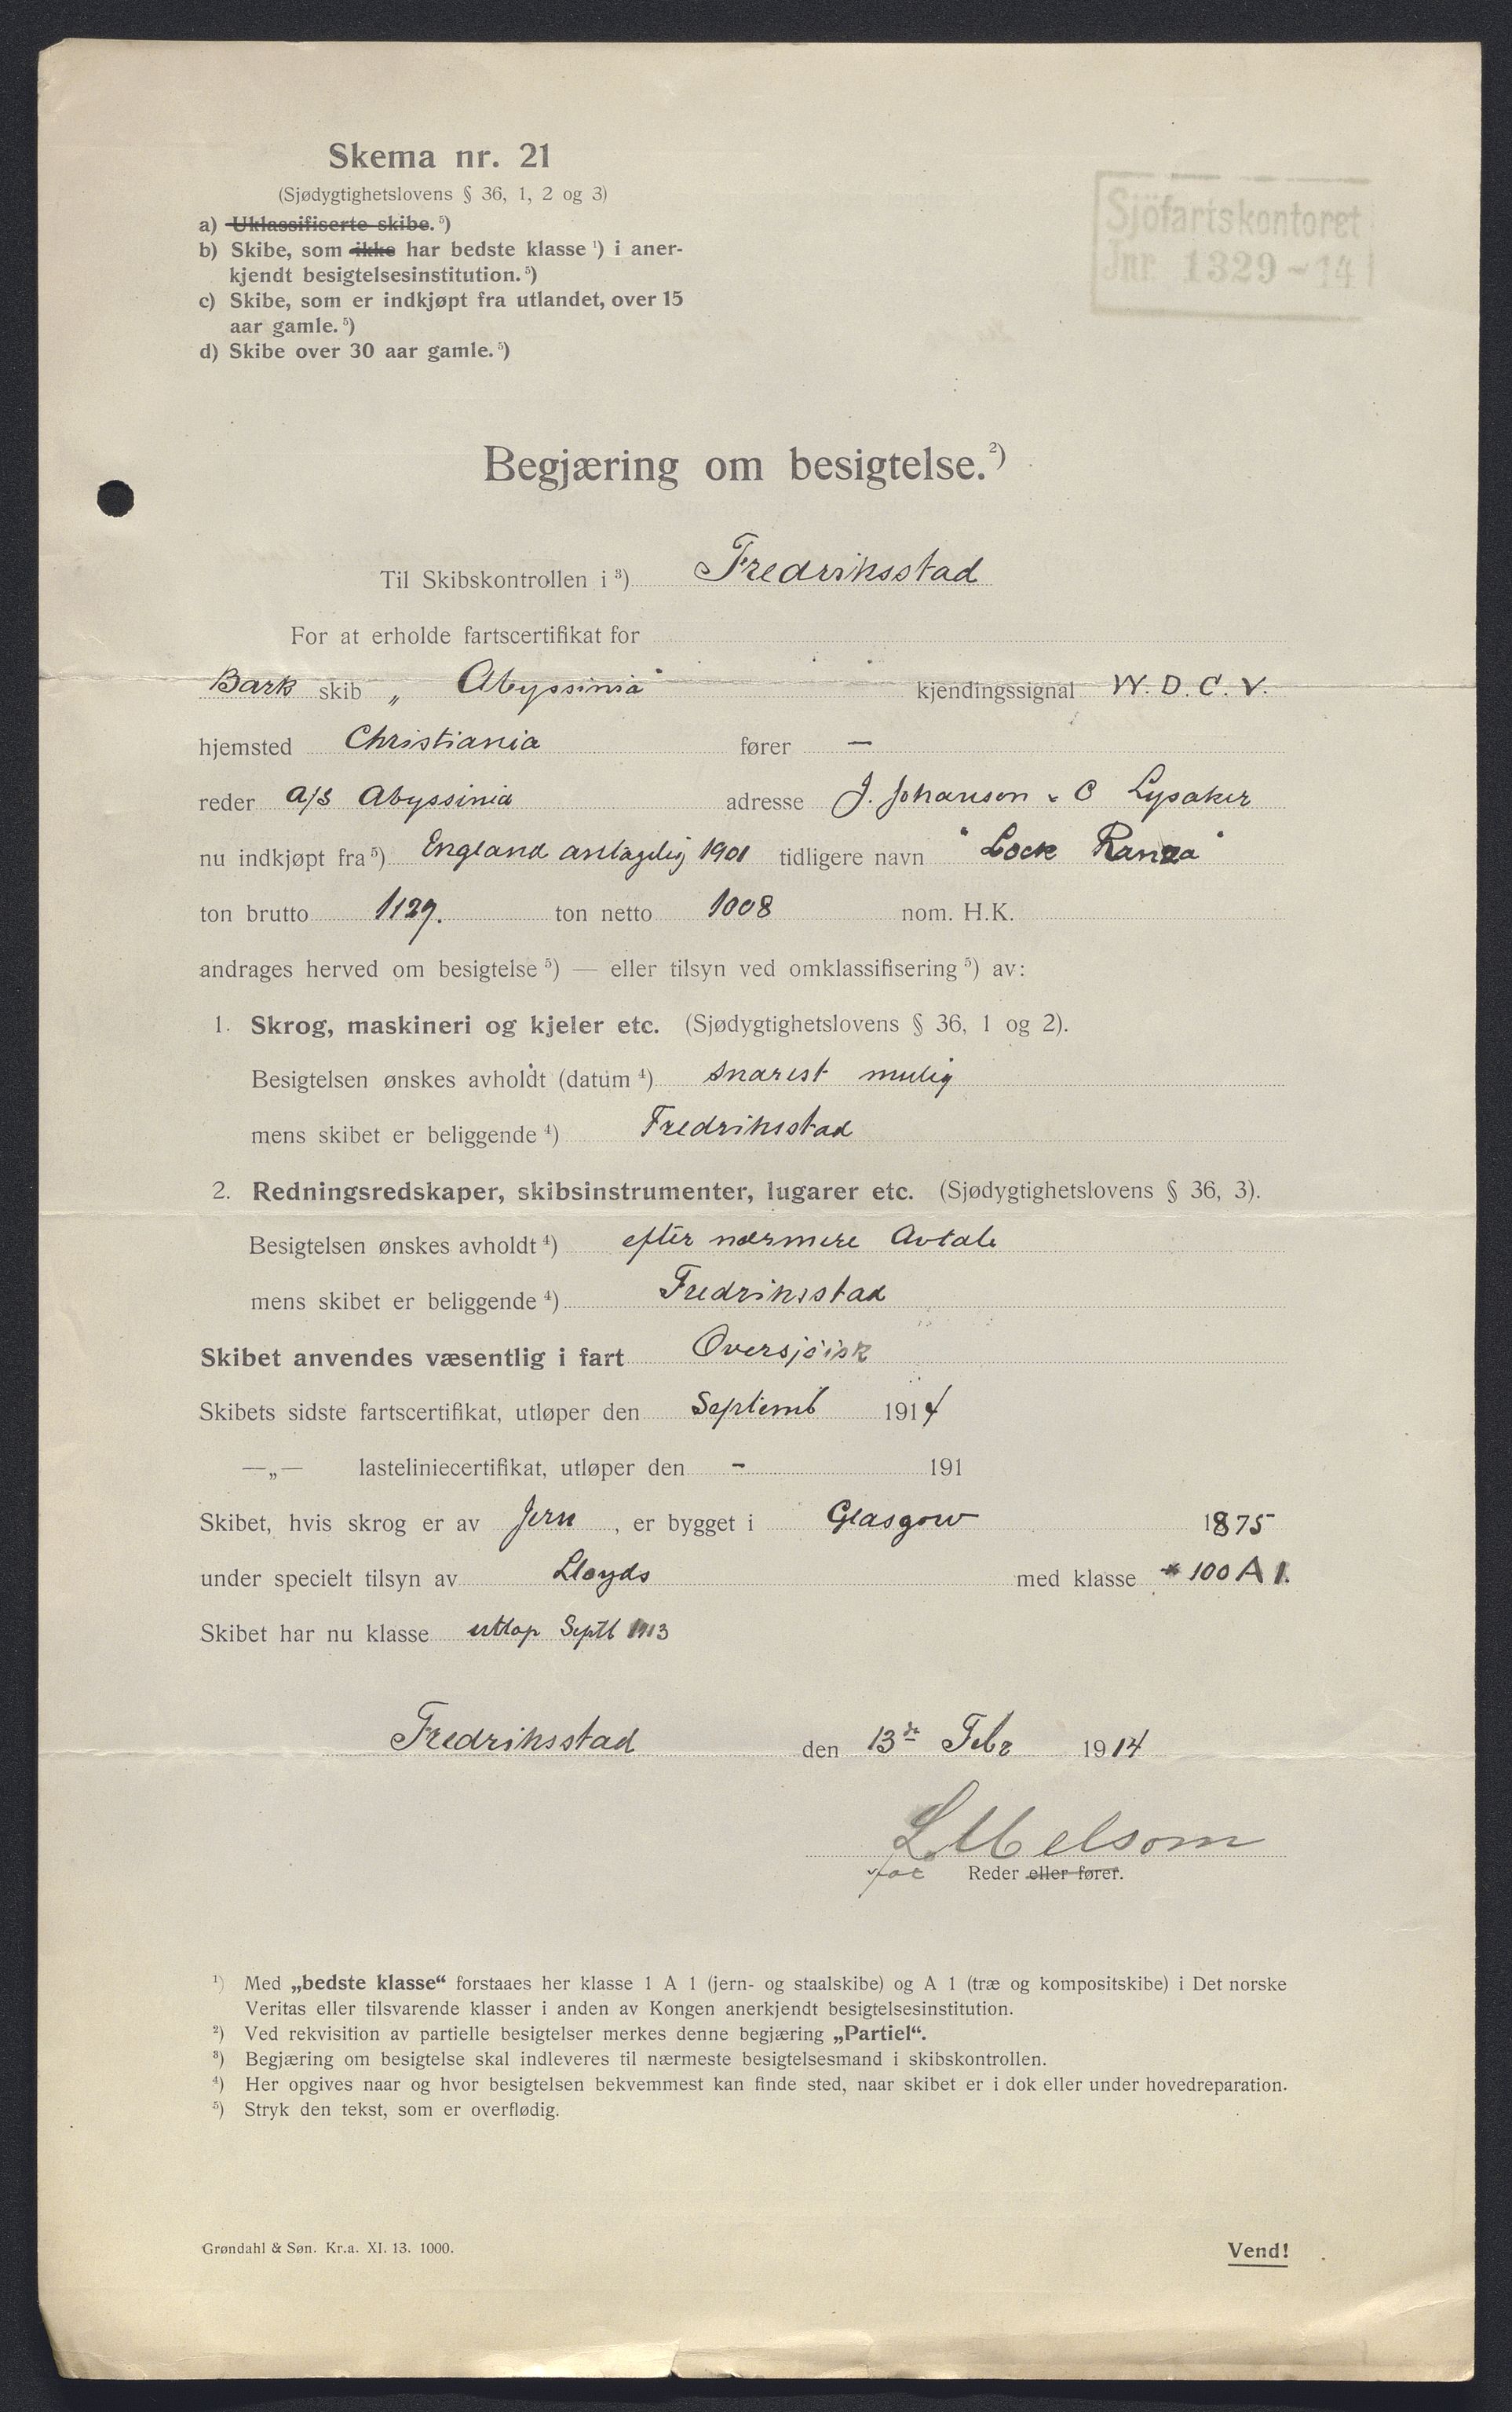 Skema nr. 21
(Sjødygtighetslovens § 36, 1, 2 og 3)
Sjöfartskontoret
Jnr. 1329-14
a) Uklassifiserte skibe. ⁵)
b) Skibe, som ikke har bedste klasse ¹) i aner-
kjendt besigtelsesinstitution. ⁵)
c) Skibe, som er indkjøpt fra utlandet, over 15
aar gamle. ⁵)
d) Skibe over 30 aar gamle. ⁵)
Begjæring om besigtelse. ²)
Til Skibskontrollen i ³) Fredriksstad
For at erholde fartscertifikat for
Bark skib „ Abyssinia" kjendingssignal W. D. C. V.
hjemsted Christiania fører —
reder a/s Abyssinia adresse J. Johanson & C Lysaker
nu indkjøpt fra ⁵) England antagelig 1901 tidligere navn "Lock Ranza"
ton brutto 1129. ton netto 1008 nom. H.K.
andrages herved om besigtelse ⁵) — eller tilsyn ved omklassifisering ⁵) av:
1. Skrog, maskineri og kjeler etc. (Sjødygtighetslovens § 36, 1 og 2).
Besigtelsen ønskes avholdt (datum ⁴) snarest mulig
mens skibet er beliggende ⁴) Fredriksstad
2. Redningsredskaper, skibsinstrumenter, lugarer etc. (Sjødygtighetslovens § 36, 3).
Besigtelsen ønskes avholdt ⁴) efter nærmere Avtale
mens skibet er beliggende ⁴) Fredriksstad
Skibet anvendes væsentlig i fart Oversjøisk
Skibets sidste fartscertifikat, utløper den Septemb 1914
—„— lasteliniecertifikat, utløper den - 191
Skibet, hvis skrog er av Jern , er bygget i Glasgow 1875
under specielt tilsyn av Lloyds med klasse * 100 A 1.
Skibet har nu klasse utløp Septb 1913
Fredriksstad den 13de Febr 1914
L Melsom
for Reder eller fører.
¹) Med „bedste klasse“ forstaaes her klasse 1 A 1 (jern- og staalskibe) og A 1 (træ og kompositskibe) i Det norske
Veritas eller tilsvarende klasser i anden av Kongen anerkjendt besigtelsesinstitution.
²) Ved rekvisition av partielle besigtelser merkes denne begjæring „Partiel“.
³) Begjæring om besigtelse skal indleveres til nærmeste besigtelsesmand i skibskontrollen.
⁴) Her opgives naar og hvor besigtelsen bekvemmest kan finde sted, naar skibet er i dok eller under hovedreparation.
⁵) Stryk den tekst, som er overflødig.
Grøndahl & Søn. Kr.a. XI. 13. 1000.
Vend!